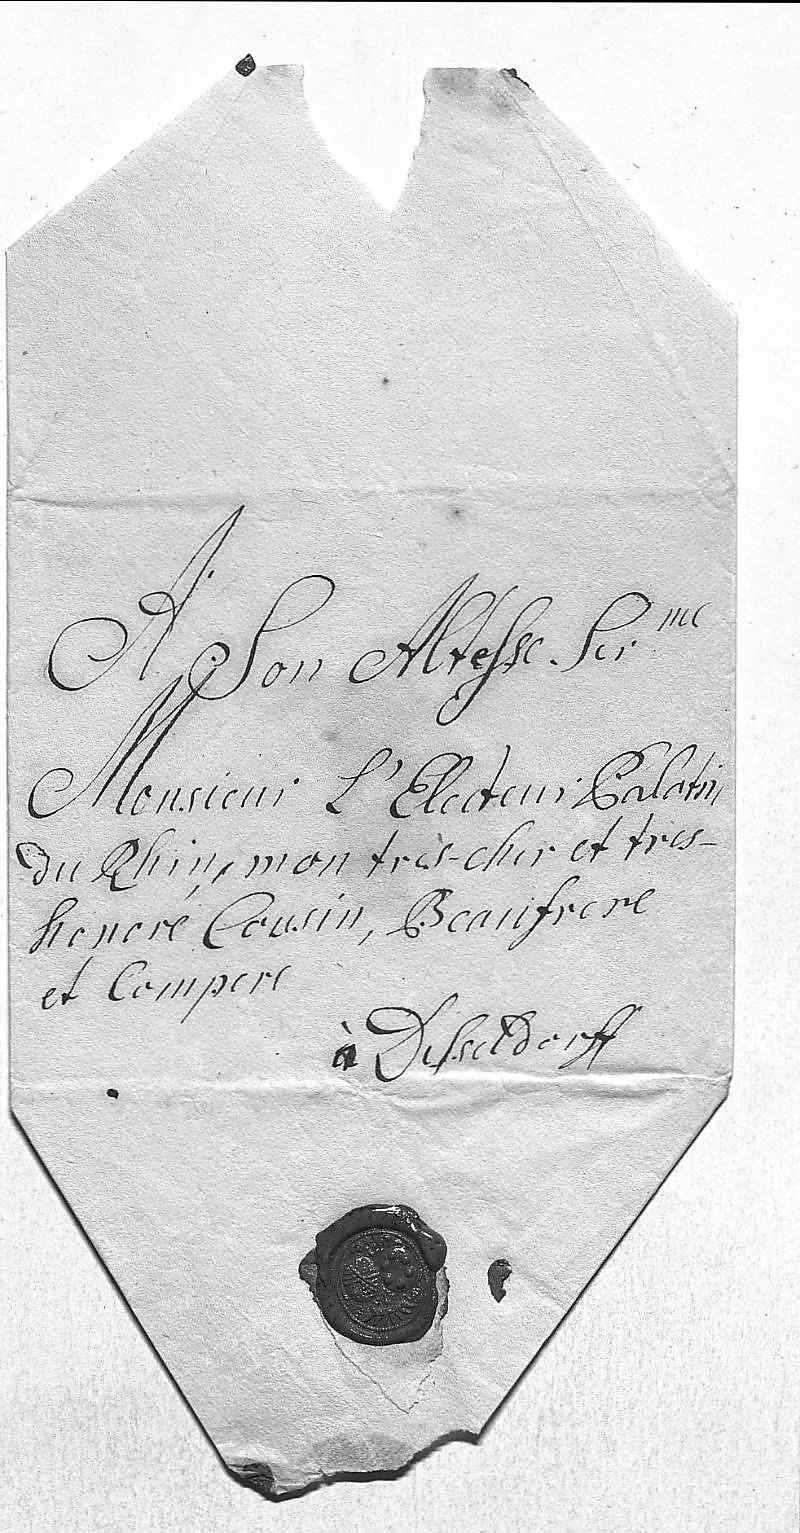 A Son Altesse Ser.me
Monsieur L'Electeur Palatin
du Rhin, mon très-cher et tres-
honoré Cousin, Beaufrere
et Compere
à Dusseldorff